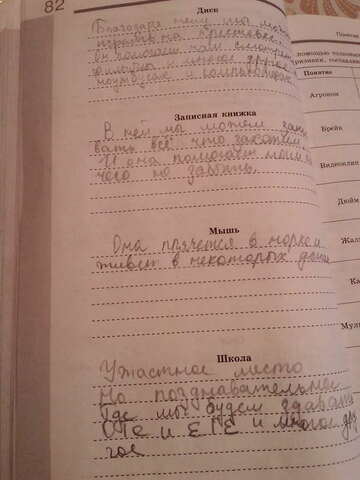 82
Диск
Благодаря нему мы можем
играть на
он помогает нам смотреть
фильмы и многое другое
ноутбуках и компьютерах
Записная книжка
В ней мы можем запи
вать всё что захотем
И она помогает нам
чего не забыть,
Мышь
Она прячется в норке и
живёт в некоторых домах
Школа
Ужастное место
Но познавательное
Где мы будем здават
ОГЕ и ЕГЕ и многое дру
гое
Понятие
помощью толково
признаки, составля
Понятие
Агроном
Брейк
Видеоклип
Дюйм
Жал
Ка
Муль